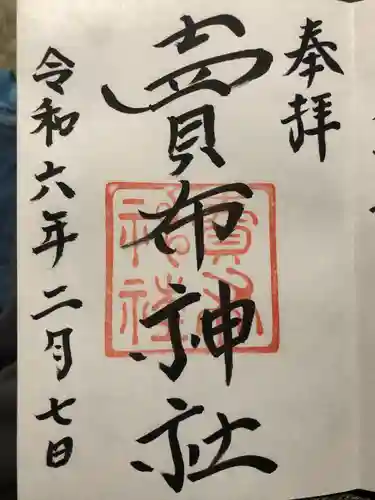 奉拝
賣布神社
令和六年二月七日